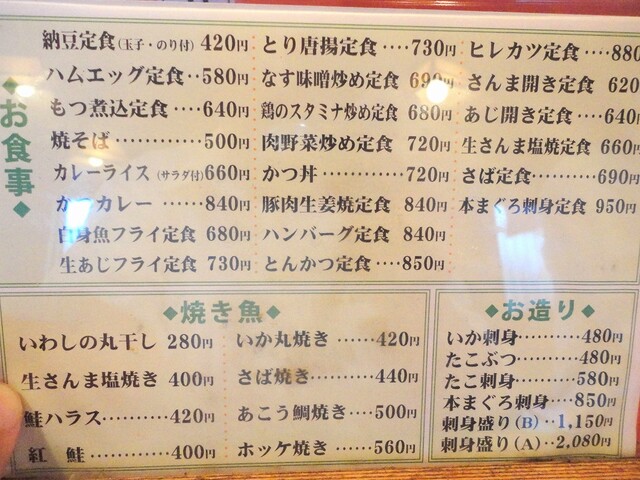 お食事
納豆定食(玉子・のり付) 420円
ハムエッグ定食‥580円
もつ煮込定食‥‥640円
焼そば…………500円
カレーライス(サラダ付)660円
かつカレー……840円
白身魚フライ定食 680円
生あじフライ定食 730円
とり唐揚定食‥‥730円
なす味噌炒め定食 690円
鶏のスタミナ炒め定食 680円
肉野菜炒め定食 720円
かつ丼…………720円
豚肉生姜焼定食 840円
ハンバーグ定食 840円
とんかつ定食‥‥850円
ヒレカツ定食‥‥880
さんま開き定食 620
あじ開き定食‥‥640円
生さんま塩焼定食 660円
さば定食………690円
本まぐろ刺身定食 950円
◆焼き魚◆
いわしの丸干し 280円
生さんま塩焼き 400円
鮭ハラス………420円
紅 鮭…………400円
いか丸焼き……420円
さば焼き………440円
あこう鯛焼き‥‥500円
ホッケ焼き……560円
◆お造り◆
いか刺身………480円
たこぶつ………480円
たこ刺身………580円
本まぐろ刺身‥‥850円
刺身盛り(B)‥1,150円
刺身盛り(A)‥2,080円